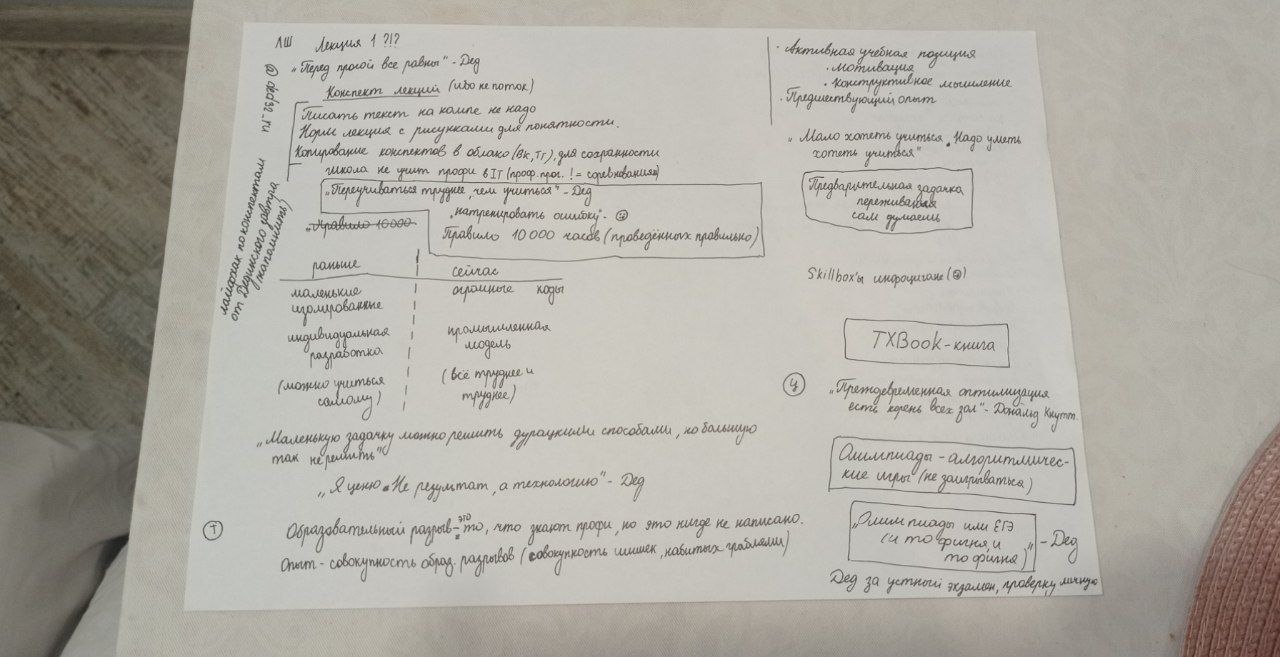 ЛШ Лекция 1 ?!?
@ded32_ru
„Перед прогой все равны" - Дед
Конспект лекций (ибо не поток)
Писать текст на компе не надо
Норм лекция с рисунками для понятности.
Копирование конспектов в облако (Вк, Тг), для сохранности
школа не учит профи в IT (проф. прог. != соревнования)
лайфхак по конспектам
от Дединского (автра
напомнить)
„Переучиваться труднее, чем учиться" - Дед
„натренировать ошибку" - ☺
„Правило 10000
Правило 10 000 часов (проведённых правильно)
раньше сейчас
маленькие огромные коды
изолированные
индивидуальная промышленная
разработка модель
(можно учиться (всё труднее и
самому) труднее)
„Маленькую задачку можно решить дурацкими способами, но большую
так не решить"
„Я ценю не результат, а технологию" - Дед
Образовательный разрыв - это то, что знают профи, но это нигде не написано.
Опыт - совокупность образ. разрывов (совокупность шишек, набитых граблями)
· Активная учебная позиция
· Мотивация
· Конструктивное мышление
· Предшествующий опыт
„Мало хотеть учиться. Надо уметь
хотеть учиться"
Предварительная задачка,
переживания
сам думаешь
Skillbox'ы инфоцигане (☺)
TXBook - книга
Ц
„Преждевременная оптимизация
есть корень всех зол" - Дональд Кнутт.
Олимпиады - алгоритмичес-
кие игры (не заигрываться)
„Олимпиады или ЕГЭ
(и то фигня, и
то фигня)" - Дед
Дед за устный экзамен, проверку личную